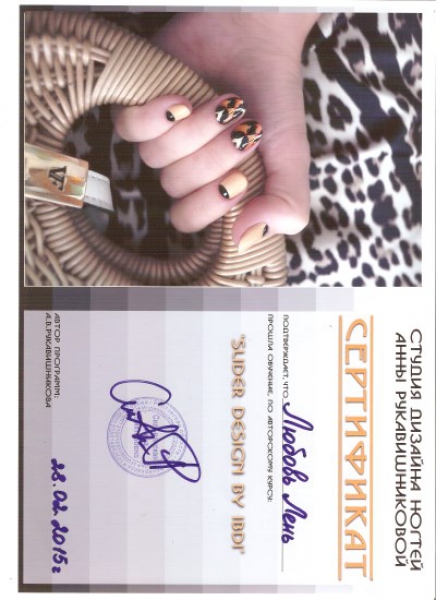 СТУДИЯ ДИЗАЙНА НОГТЕЙ
АННЫ РУКАВИШНИКОВОЙ
СЕРТИФИКАТ
ПОДТВЕРЖДАЕТ, ЧТО Любовь Лень
ПРОШЛА ОБУЧЕНИЕ, ПО АВТОРСКОМУ КУРСУ:
"SLIDER DESIGN BY IBDI"
АВТОР ПРОГРАММ:
А.В.РУКАВИШНИКОВА
28.02.2015г